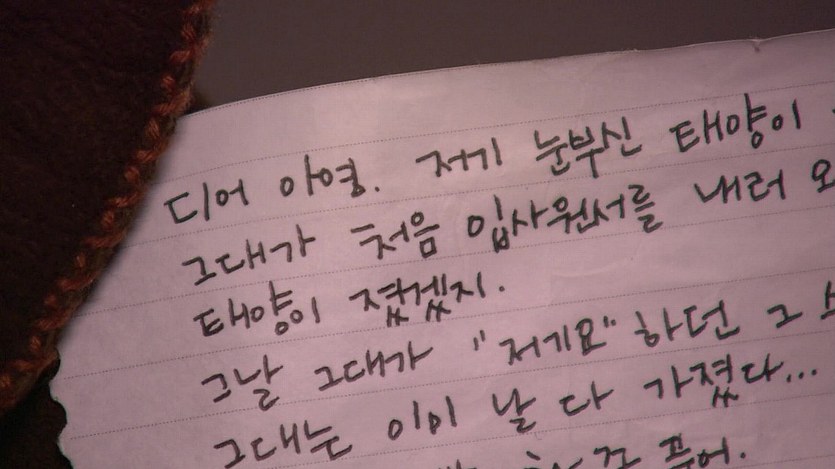 디어 아영. 저기 눈부신 태양이
그대가 처음 입사원서를 내러 오
태양이 졌겠지.
그날 그대가 "저기요" 하던 그
그대는 이미 날 다 가졌다...